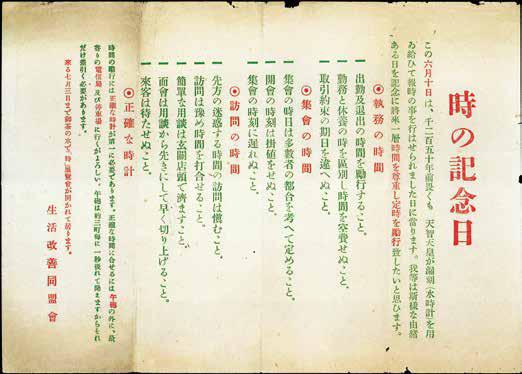 時の記念日
この六月十日は、千二百五十年前畏くも 天智天皇が漏刻(水時計)を用
ゐ給ひて報時の事を行はせられました日に當ります。我等は斯樣な由緖
ある日を記念に將來一層時間を尊重し定時を勵行致したいと思ひます。
◉執務の時間
一 出勤及退出の時間を勵行すること。
一 勤務と休養の時を區別し時間を空費せぬこと。
一 取引約束の期日を違へぬこと。
◉集會の時間
一 集會の時日は多數者の都合を考へて定めること。
一 開會の時刻は掛値をせぬこと。
一 集會の時刻に遲れぬこと。
◉訪問の時間
一 先方の迷惑する時間の訪問は愼むこと。
一 訪問は豫め時間を打合せること。
一 簡單な用談は玄關店頭で濟ますこと。
一 面會は用談から先きにして早く切り上げること。
一 來客は待たせぬこと。
◉正確な時計
時間の勵行には正確な時計が第一に必要であります。正確な時間に合せるには午砲の外に、最
寄りの電信局及び停車場に行くがよろしい。午砲は約三町每に一秒後れて聞えますからそれ
だけ差引く必要があります。
來る七月三日まで御茶の水で、時、展覽會が開かれて居ります。
生活改善同盟會